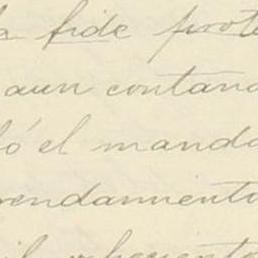 la fide prote
aun contand
ló el manda
rendamiento